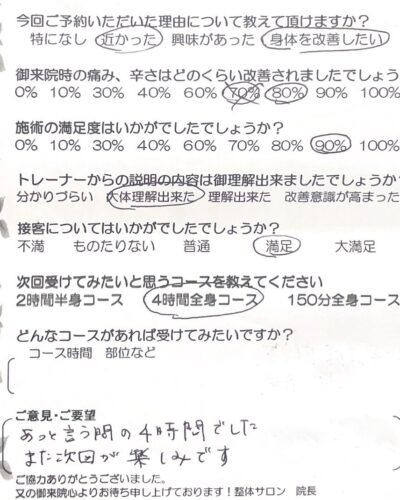 今回ご予約いただいた理由について教えて頂けますか?
特になし 近かった 興味があった 身体を改善したい
御来院時の痛み、辛さはどのくらい改善されましたでしょう
0% 10% 30% 40% 60% 70% 80% 90% 100%
施術の満足度はいかがでしたでしょうか?
0% 10% 30% 40% 60% 70% 80% 90% 100%
トレーナーからの説明の内容は御理解出来ましたでしょうか
分かりづらい 大体理解出来た 理解出来た 改善意識が高まった
接客についてはいかがでしたでしょうか?
不満 ものたりない 普通 満足 大満足
次回受けてみたいと思うコースを教えてください
2時間半身コース 4時間全身コース 150分全身コース
どんなコースがあれば受けてみたいですか?
コース時間 部位など
ご意見・ご要望
あっと言う間の4時間でした
また次回が楽しみです
ご協力ありがとうございました。
又の御来院心よりお待ち申し上げております!整体サロン 院長